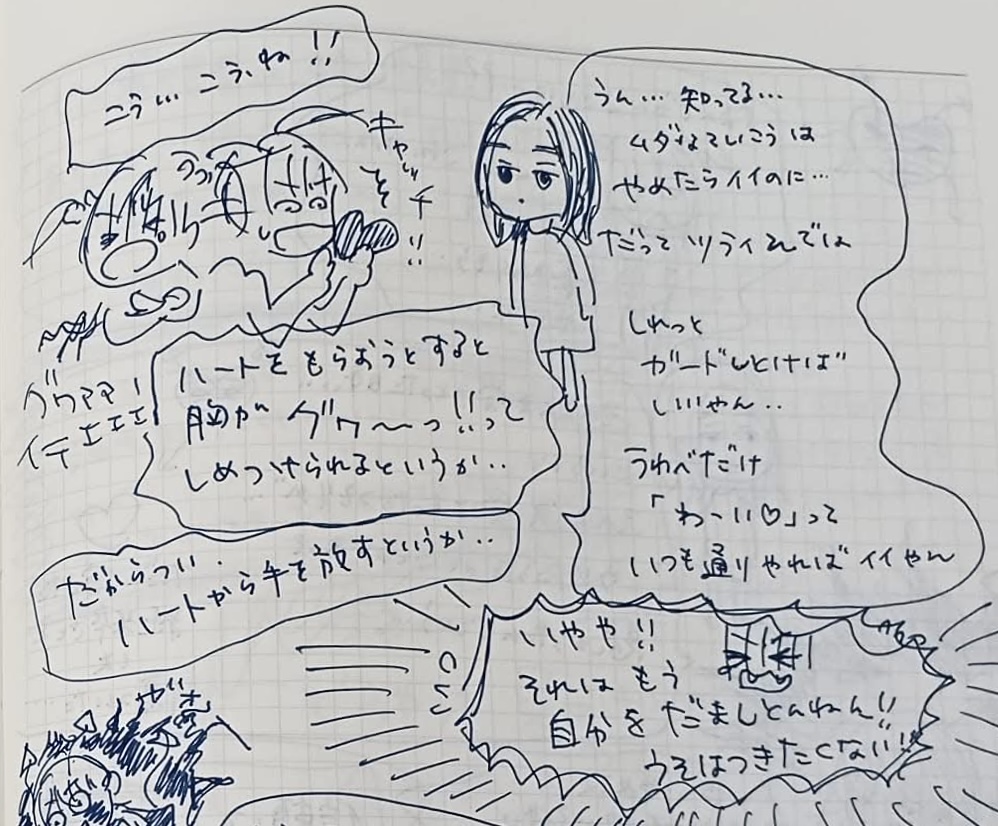 こう… こう、ね!!
キャッチ!!
グゥアァァ!
イテエエエ
ハートをもらおうとすると
胸が グワ〜っ!!って
しめつけられるというか‥
だからつい
ハートから手を放すというか‥
うん… 知ってる…
ムダなていこうは
やめたらイイのに…
だってツライんでは
しれっと
ガードしとけば
いいやん‥
うわべだけ
「わーい♡」って
いつも通りやればイイやん
いやや!!
それはもう
自分をだましとんねん!!
うそはつきたくない!!